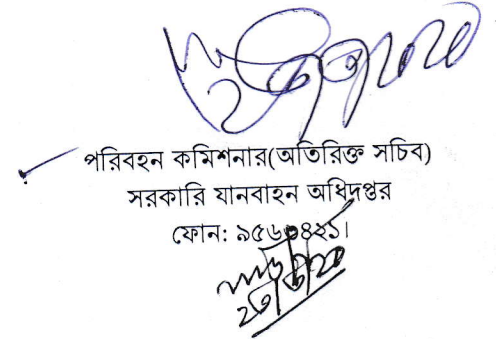 পরিবহন কমিশনার(অতিরিক্ত সচিব)
সরকারি যানবাহন অধিদপ্তর
ফোন: ৯৫৬০৪২১।